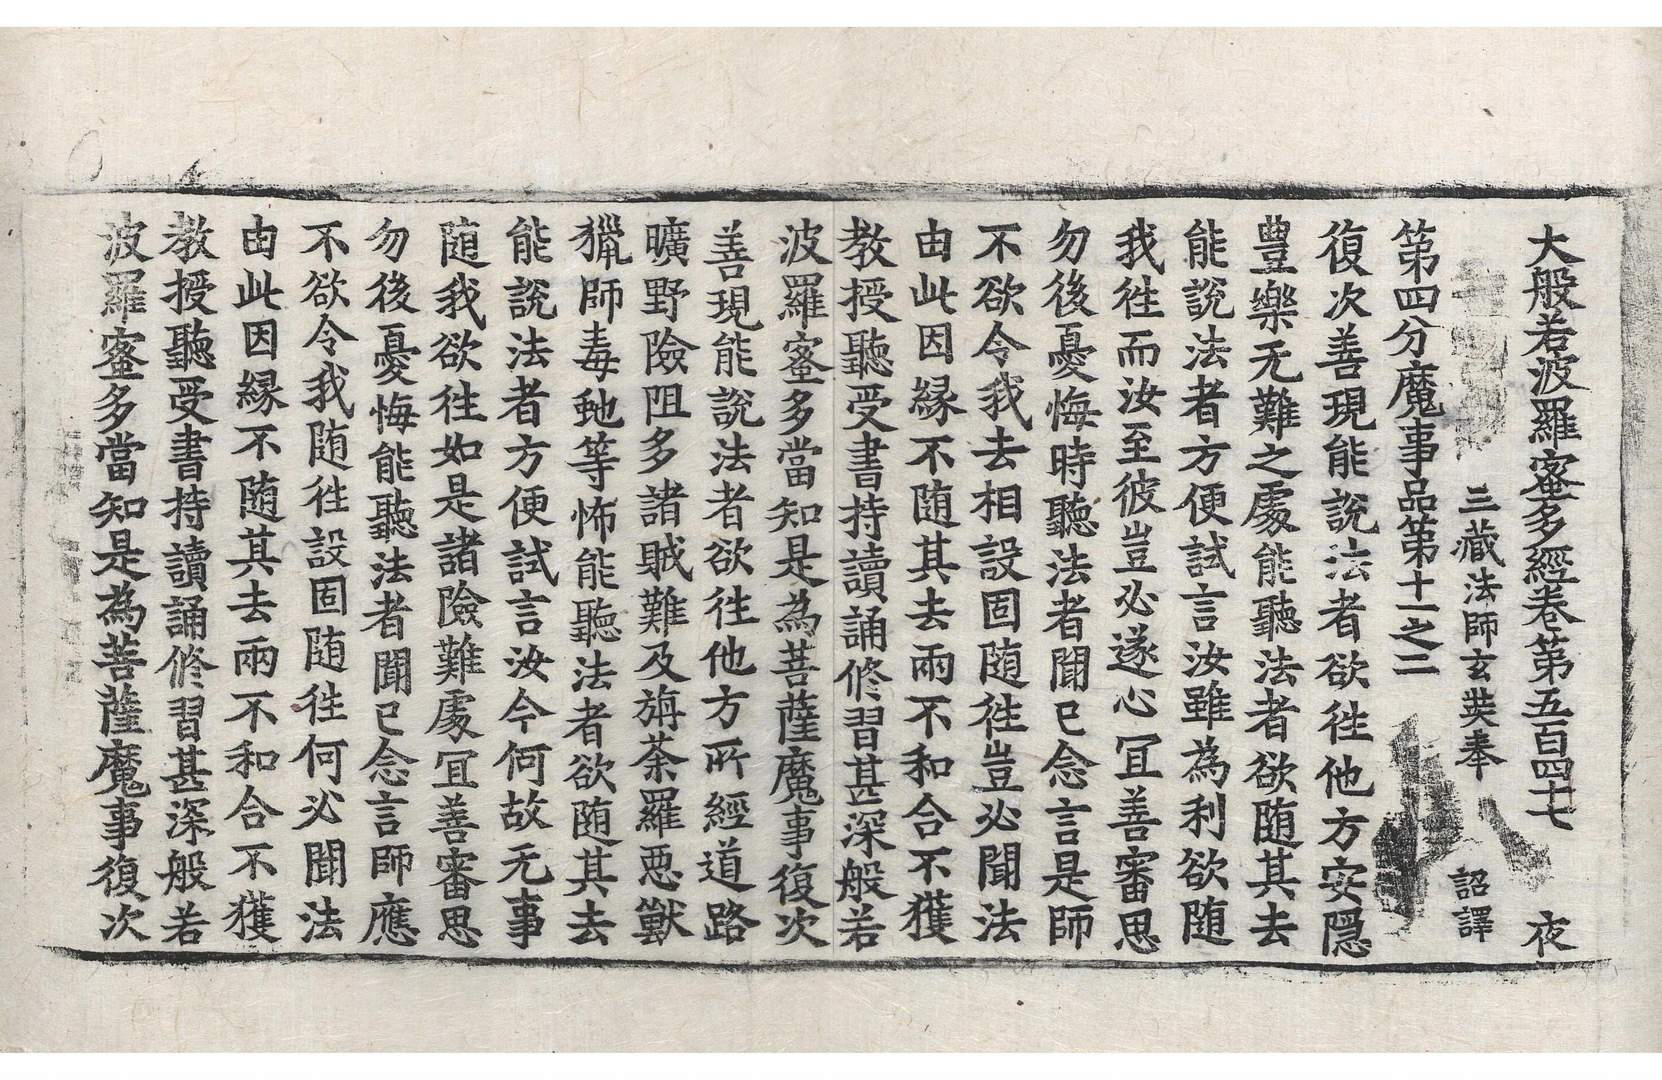 大般若波羅蜜多經卷第五百四十七　夜
三藏法師玄奘奉　詔譯
第四分魔事品第十一之二
復次善現能說法者欲徃他方安隱
豊樂无難之處能聽法者欲随其去
能說法者方便試言汝雖為利欲随
我徃而汝至彼豈必遂心冝善審思
勿後憂悔時聽法者聞已念言是師
不欲令我去相設固随徃豈必聞法
由此因緣不随其去兩不和合不獲
教授聽受書持讀誦修習甚深般若
波羅蜜多當知是為菩薩魔事復次
善現能說法者欲徃他方所經道路
曠野險阻多諸賊難及旃荼羅惡獸
獵師毒虵等怖能聽法者欲随其去
能說法者方便試言汝今何故无事
随我欲徃如是諸險難處冝善審思
勿後憂悔能聽法者聞已念言師應
不欲令我随徃設固随徃何必聞法
由此因緣不随其去兩不和合不獲
教授聽受書持讀誦修習甚深般若
波羅蜜多當知是為菩薩魔事復次